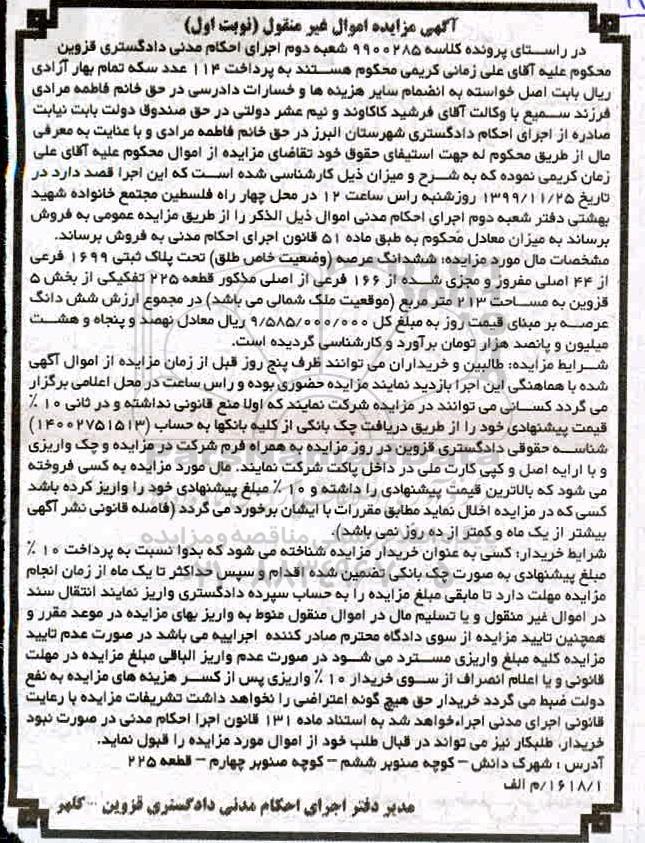 آگهی مزایده اموال غیر منقول (نوبت اول)
در راستای پرونده کلاسه ۹۹۰۰۲۸۵ شعبه دوم اجرای احکام مدنی دادگستری قزوین
محکوم علیه آقای علی زمانی کریمی محکوم هستند به پرداخت ۱۱۴ عدد سکه تمام بهار آزادی
ریال بابت اصل خواسته به انضمام سایر هزینه ها و خسارات دادرسی در حق خانم فاطمه مرادی
فرزند سمیع با وکالت آقای فرشید کاکاوند و نیم عشر دولتی در حق صندوق دولت بابت نیابت
صادره از اجرای احکام دادگستری شهرستان البرز در حق خانم فاطمه مرادی و با عنایت به معرفی
مال از طریق محکوم له جهت استیفای حقوق خود تقاضای مزایده از اموال محکوم علیه آقای علی
زمان کریمی نموده که به شرح و میزان ذیل کارشناسی شده است که این اجرا قصد دارد در
تاریخ ۱۳۹۹/۱۱/۲۵ روزشنبه راس ساعت ۱۲ در محل چهار راه فلسطین مجتمع خانواده شهید
بهشتی دفتر شعبه دوم اجرای احکام مدنی اموال ذیل الذکر را از طریق مزایده عمومی به فروش
برساند به میزان معادل محکوم به طبق ماده ۵۱ قانون اجرای احکام مدنی به فروش برساند.
مشخصات مال مورد مزایده: ششدانگ عرصه (وضعیت خاص طلق) تحت پلاک ثبتی ۱۶۹۹ فرعی
از ۴۴ اصلی مفروز و مجزی شده از ۱۶۶ فرعی از اصلی مذکور قطعه ۲۲۵ تفکیکی از بخش ۵
قزوین به مساحت ۲۱۳ متر مربع (موقعیت ملک شمالی می باشد) در مجموع ارزش شش دانگ
عرصه بر مبنای قیمت روز به مبلغ کل ۹/۵۸۵/۰۰۰/۰۰۰ ریال معادل نهصد و پنجاه و هشت
میلیون و پانصد هزار تومان برآورد و کارشناسی گردیده است.
شرایط مزایده: طالبین و خریداران می توانند ظرف پنج روز قبل از زمان مزایده از اموال آگهی
شده با هماهنگی این اجرا بازدید نمایند مزایده حضوری بوده و راس ساعت در محل اعلامی برگزار
می گردد کسانی می توانند در مزایده شرکت نمایند که اولا منع قانونی نداشته و در ثانی ۱۰ ٪
قیمت پیشنهادی خود را از طریق دریافت چک بانکی از کلیه بانکها به حساب (۱۴۰۰۲۷۵۱۵۱۳)
شناسه حقوقی دادگستری قزوین در روز مزایده به همراه فرم شرکت در مزایده و چک واریزی
و با ارایه اصل و کپی کارت ملی در داخل پاکت شرکت نمایند. مال مورد مزایده به کسی فروخته
می شود که بالاترین قیمت پیشنهادی را داشته و ۱۰ ٪ مبلغ پیشنهادی خود را واریز کرده باشد
کسی که در مزایده اخلال نماید مطابق مقررات با ایشان برخورد می گردد (فاصله قانونی نشر آگهی
بیشتر از یک ماه و کمتر از ده روز نمی باشد).
شرایط خریدار: کسی به عنوان خریدار مزایده شناخته می شود که بدوا نسبت به پرداخت ۱۰ ٪
مبلغ پیشنهادی به صورت چک بانکی تضمین شده اقدام و سپس حداکثر تا یک ماه از زمان انجام
مزایده مهلت دارد تا مابقی مبلغ مزایده را به حساب سپرده دادگستری واریز نمایند انتقال سند
در اموال غیر منقول و یا تسلیم مال در اموال منقول منوط به واریز بهای مزایده در موعد مقرر و
همچنین تایید مزایده از سوی دادگاه محترم صادر کننده اجراییه می باشد در صورت عدم تایید
مزایده کلیه مبلغ واریزی مسترد می شود در صورت عدم واریز الباقی مبلغ مزایده در مهلت
قانونی و یا اعلام انصراف از سوی خریدار ۱۰ ٪ واریزی پس از کسر هزینه های مزایده به نفع
دولت ضبط می گردد خریدار حق هیچ گونه اعتراضی را نخواهد داشت تشریفات مزایده با رعایت
قانونی اجرای مدنی اجراءخواهد شد به استناد ماده ۱۳۱ قانون اجرا احکام مدنی در صورت نبود
خریدار، طلبکار نیز می تواند در قبال طلب خود از اموال مورد مزایده را قبول نماید.
آدرس : شهرک دانش – کوچه صنوبر ششم – کوچه صنوبر چهارم – قطعه ۲۲۵
۱۶۱۸/۱/م الف
مدیر دفتر اجرای احکام مدنی دادگستری قزوین ... گلهر